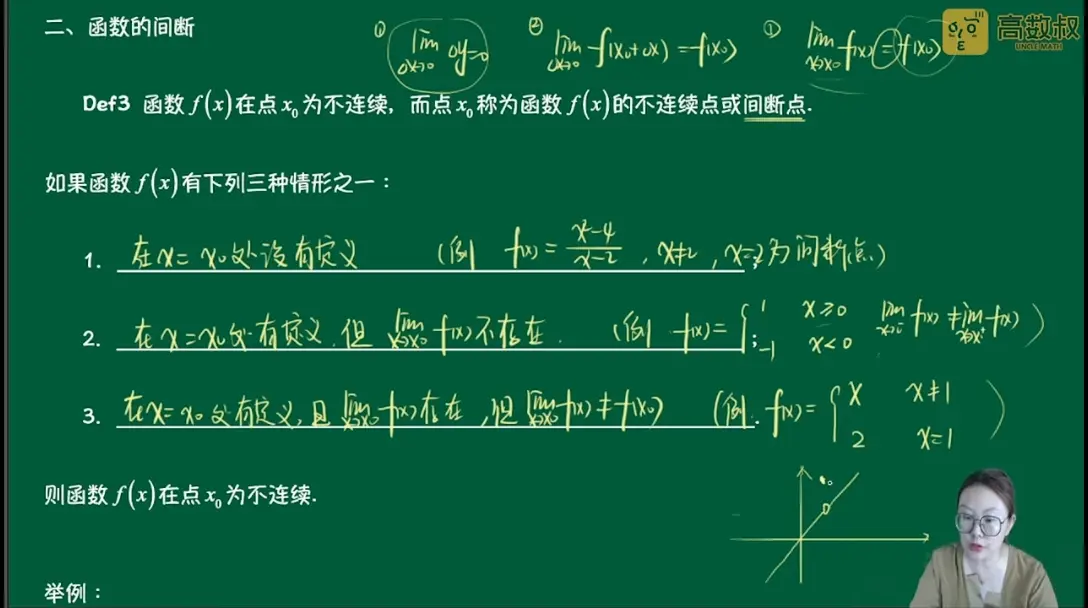 二、函数的间断 ① lim Δx→0 Δy=0 ② lim Δx→0 f(x₀+Δx)=f(x₀) ③ lim x→x₀ f(x)=f(x₀)
高数叔
UNCLE MATH
Def3 函数 f(x) 在点 x₀ 为不连续，而点 x₀ 称为函数 f(x) 的不连续点或间断点.
如果函数 f(x) 有下列三种情形之一：
1. 在 x=x₀ 处没有定义 (例 f(x)=(x²-4)/(x-2), x≠2, x=2为间断点.)
2. 在 x=x₀ 处有定义，但 lim x→x₀ f(x) 不存在. ; (例 f(x)={1 x≥0 -1 x<0 lim f(x)≠lim f(x))
3. 在 x=x₀ 处有定义，且 lim x→x₀ f(x) 存在，但 lim x→x₀ f(x)≠f(x₀) . (例 f(x)={x x≠1 2 x=1)
则函数 f(x) 在点 x₀ 为不连续.
举例：